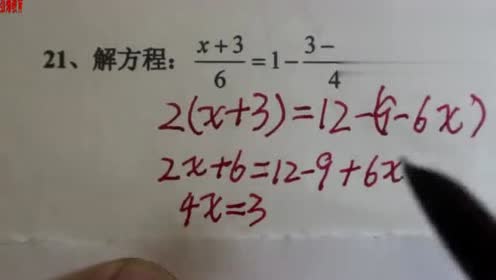 21、解方程: (x+3)/6 = 1 - (3-)/4
2(x+3)=12-(9-6x)
2x+6=12-9+6x
4x=3